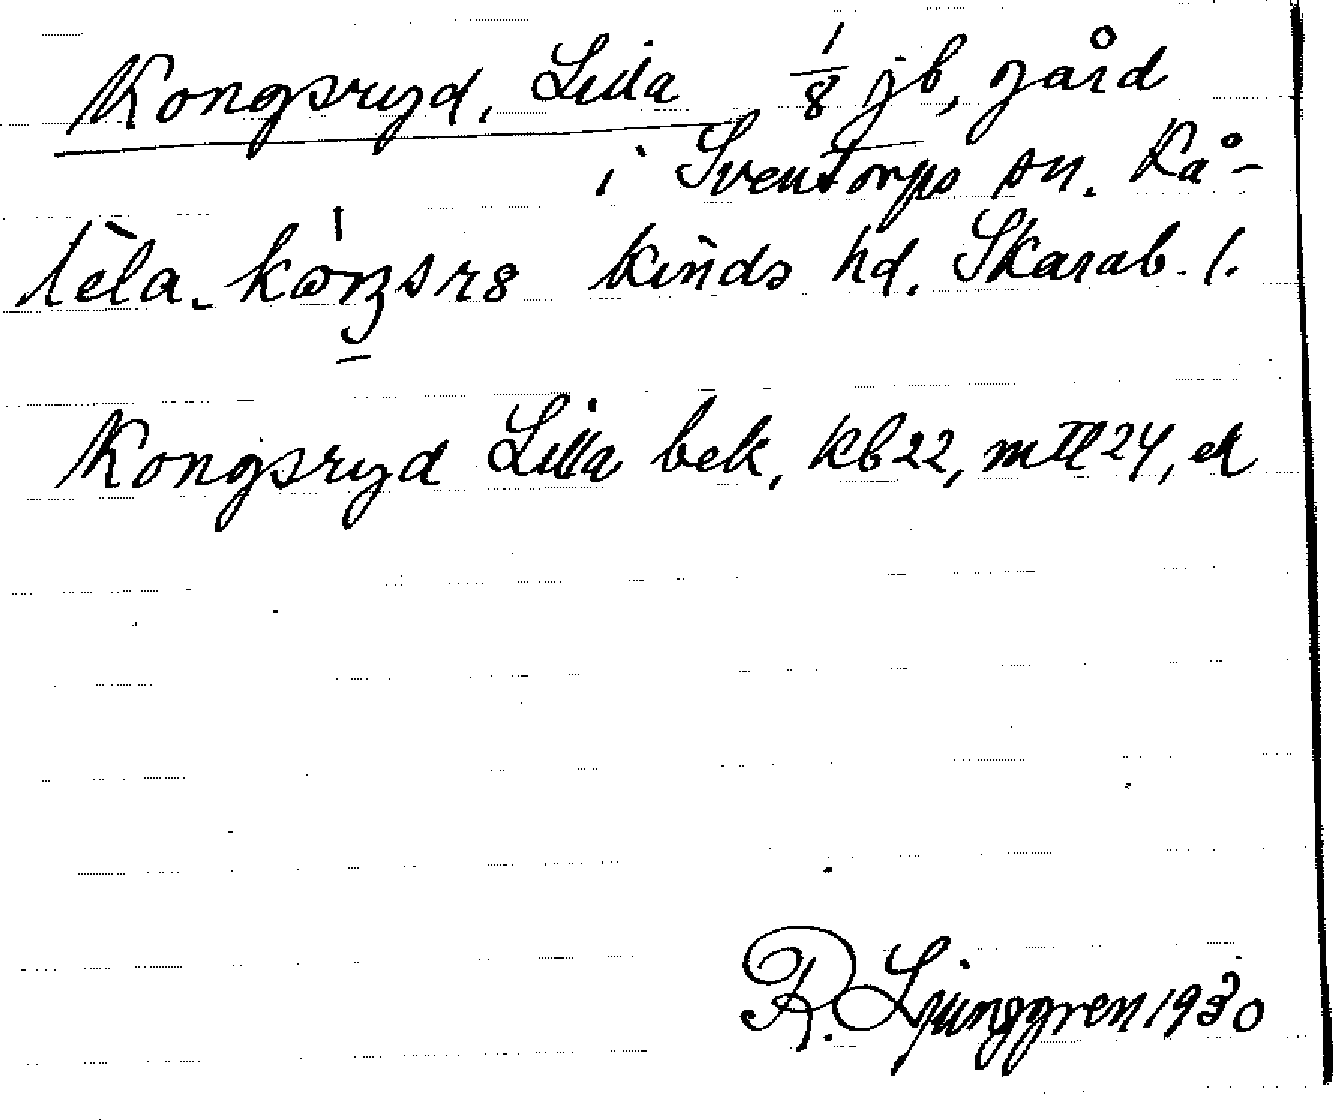 Kongsryd, Lilla 1/8 jb, gård
i Sventorps sn. Kå-
kinds hd. Skarab. l.
Kongsryd Lilla bek, Kb 22, mtl 24, ek
R. Ljunggren 1930